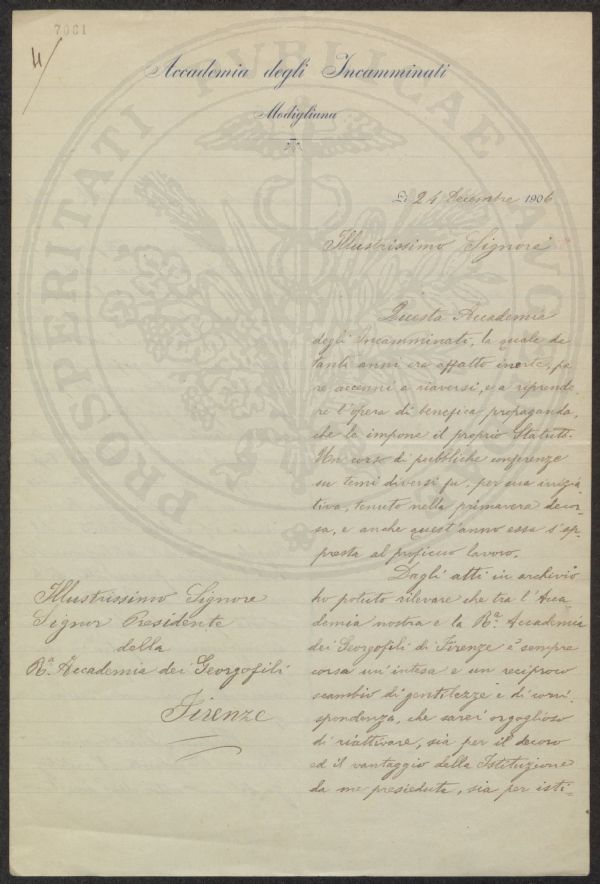 7061
4/
Accademia degli Incamminati
Modigliana
Li 24 Decembre 1906
Illustrissimo Signore
Questa Accademia
degli Incamminati, la quale da
tanti anni era affatto inerte, pa
re accenni a riaversi, e a riprende
re l'opera di benefica propaganda,
che le impone il proprio Statuto.
Un corso di pubbliche conferenze
su temi diversi fu, per sua inizia
tiva, tenuto nella primavera decor
sa, e anche quest'anno essa s'ap
presta al proficuo lavoro.
Dagli atti in archivio
ho potuto rilevare che tra l'Acca
demia nostra e la Rª. Accademia
dei Georgofili di Firenze è sempre
corsa un'intesa e un reciproco
scambio di gentilezze e di corri
spondenza, che sarei orgoglioso
di riattivare, sia per il decoro
ed il vantaggio della Istituzione
da me presieduta, sia per isti-
Illustrissimo Signore
Signor Presidente
della
Rª. Accademia dei Georgofili
Firenze
PROSPERITATI PVBLICAE